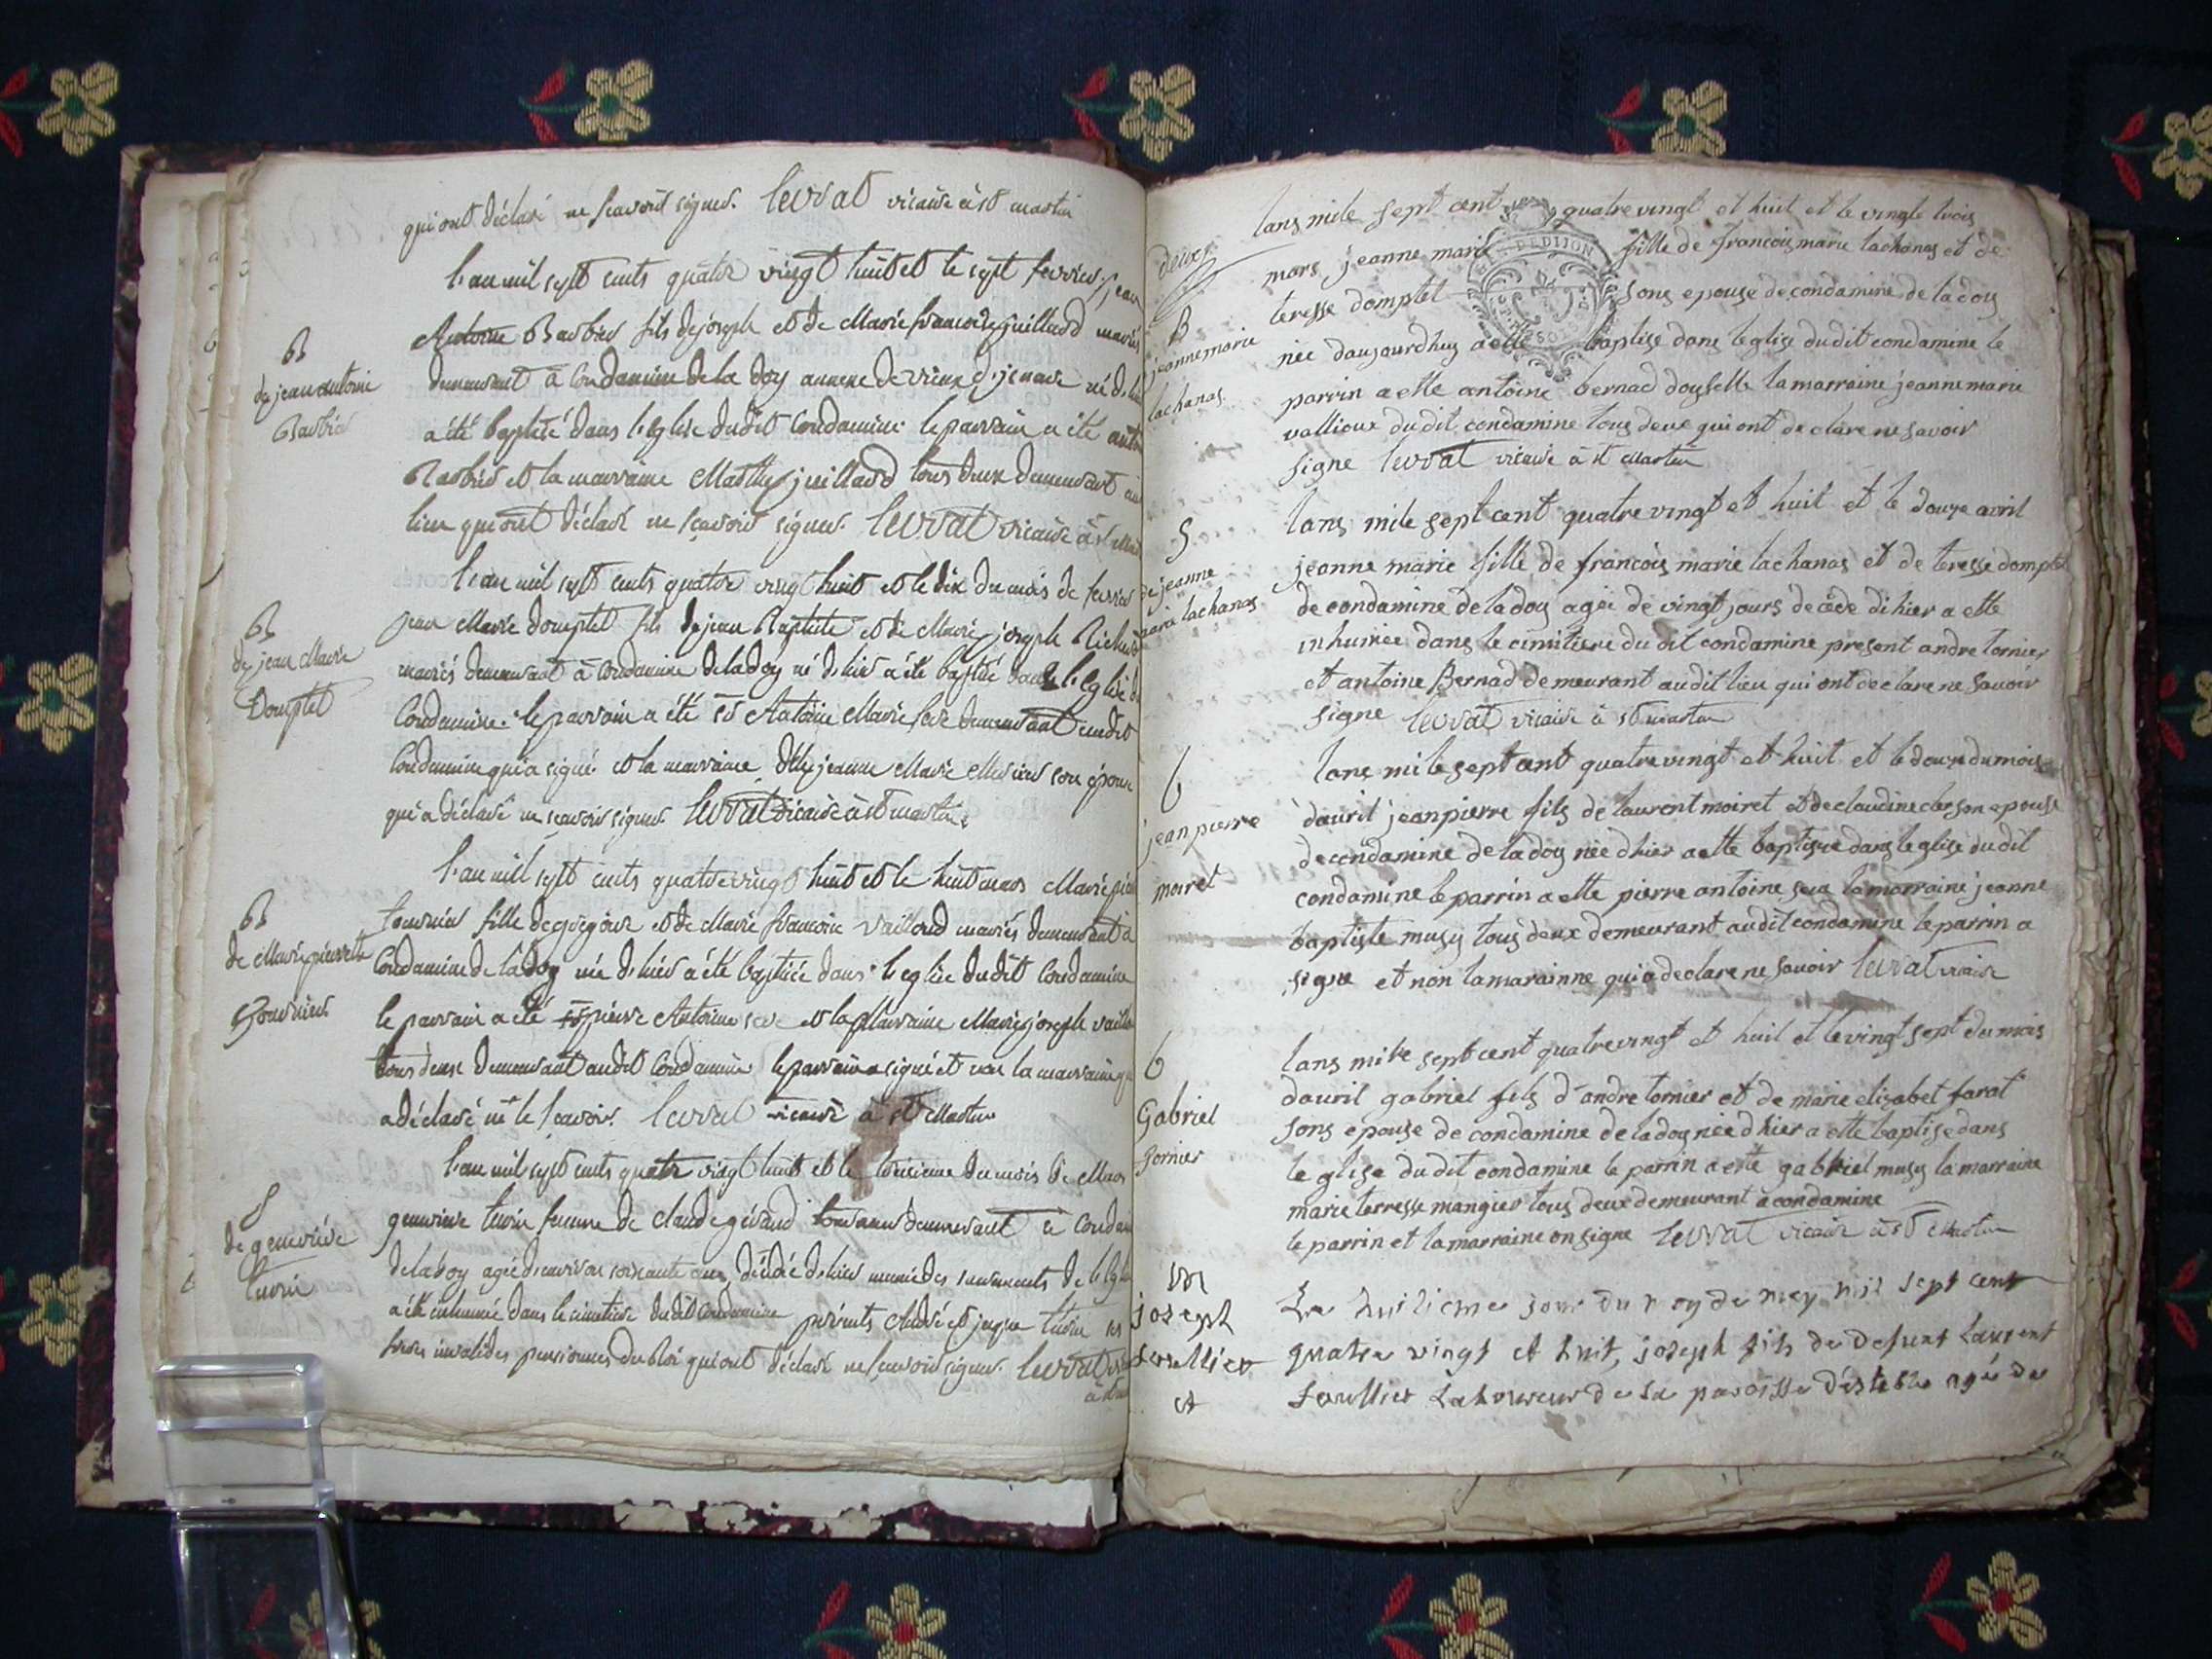 qui ont déclaré ne sçavoir signer. levrat vicaire à st martin
l'an mil sept cents quatre vingt huit et le sept fevrier jean
Antoine Barbier fils de joseph et de Marie francoise juillard mariés
demeurant à Condamine de la doy annexe de vieux d'jzenave né d'hier
a été baptisé dans l'eglise dudit Condamine le parrain a été
Barbier et la marraine Marthe juillard tous deux demeurant
lieu qui ont déclaré ne sçavoir signer. levrat vicaire à st
B
de jean antoine
Barbier
l'an mil sept cents quatre vingt huit et le dix du mois de fevrier
jean Marie Domptet fils de jean Baptiste et de Marie joseph
mariés demeurant à Condamine de la doy né d'hier a été baptisé dans l'eglise
Condamine. le parrain a été sr Antoine Marie seve demeurant audit
Condamine qui a signé et la marraine dlle jeanne Marie son épouse
qui a déclaré ne scavoir signer levrat vicaire à st martin
B
de jean Marie
Domptet
l'an mil sept cents quatre vingt huit et le huit mars Marie
tournier fille de gregoire et de Marie francoise vailloud mariés demeurant à
Condamine de la doy née d'hier a été baptisée dans l'eglise dudit Condamine
le parrain a été sr pierre Antoine seve et la Marraine Marie joseph
tous deux demeurant audit Condamine le parrain a signé et non la marraine
a déclaré ne le scavoir. levrat vicaire à st Martin
B
de Marie pierrette
Tournier
l'an mil sept cents quatre vingt huit et le troisieme du mois de Mars
genevieve turin femme de claude géraud demeurant à
de la doy agée d'environ soixante ans, décédée d'hier munie des sacrements de
a été inhumée dans le cimetiere dudit Condamine présents André et jaque turin
freres invalides pensionnes du Roi qui ont déclaré ne scavoir signer. levrat
S
de geneviéve
turin
deux
lans mile sept cent quatre vingt et huit et le vingte trois
mars jeanne marie fille de francois marie lachanas et de
DE DIJON
teresse domptet sons epouse de condamine de la doy
née daujourdhuy a ette baptise dans leglise dudit condamine le
parrin a ette antoine bernad la marraine jeanne marie
vallioux dudit condamine tous deux qui ont declare ne savoir
signe levrat vicaire à st Martin
B
jeanne marie
lachanas
lans mile sept cent quatre vingt et huit et le douze avril
jeanne marie fille de francois marie lachanas et de teresse domptet
de condamine de la doy agée de vingt jours decéde di hier a ette
inhumée dans le cimitiere du dit condamine present andre tornier
et antoine Bernad demeurant audit lieu qui ont declare ne savoir
signe levrat vicaire à st martin
S
de jeanne
marie lachanas
lans mile sept cent quatre vingt et huit et le douze du mois
dauril jean pierre fils de laurent moiret et de claudine cler son epouse
de condamine de la doy née dhier a ette baptisée dans leglise du dit
condamine le parrin a ette pierre antoine seve la marraine jeanne
baptiste musy tous deux demeurant audit condamine le parrin a
signe et non la marainne qui a declare ne savoir levrat vicaire
b
jean pierre
moiret
lans mile sept cent quatre vingt et huit et le vingt sept du mois
dauril gabriel fils d'andre tornier et de marie elizabet farat
sons epouse de condamine de la doy née dhier a ette baptise dans
le glise du dit condamine le parrin a ette gabriel musy la marraine
marie terresse mangier tous deux demeurant a condamine
le parrin et la marraine on signe levrat vicaire à st Martin
b
Gabriel
Tornier
Le huitieme jour du moy de may mil sept cent
quatre vingt et huit, joseph fils de defunt Laurent
Laboureur de la paroisse d'estables agé de
M
joseph
et